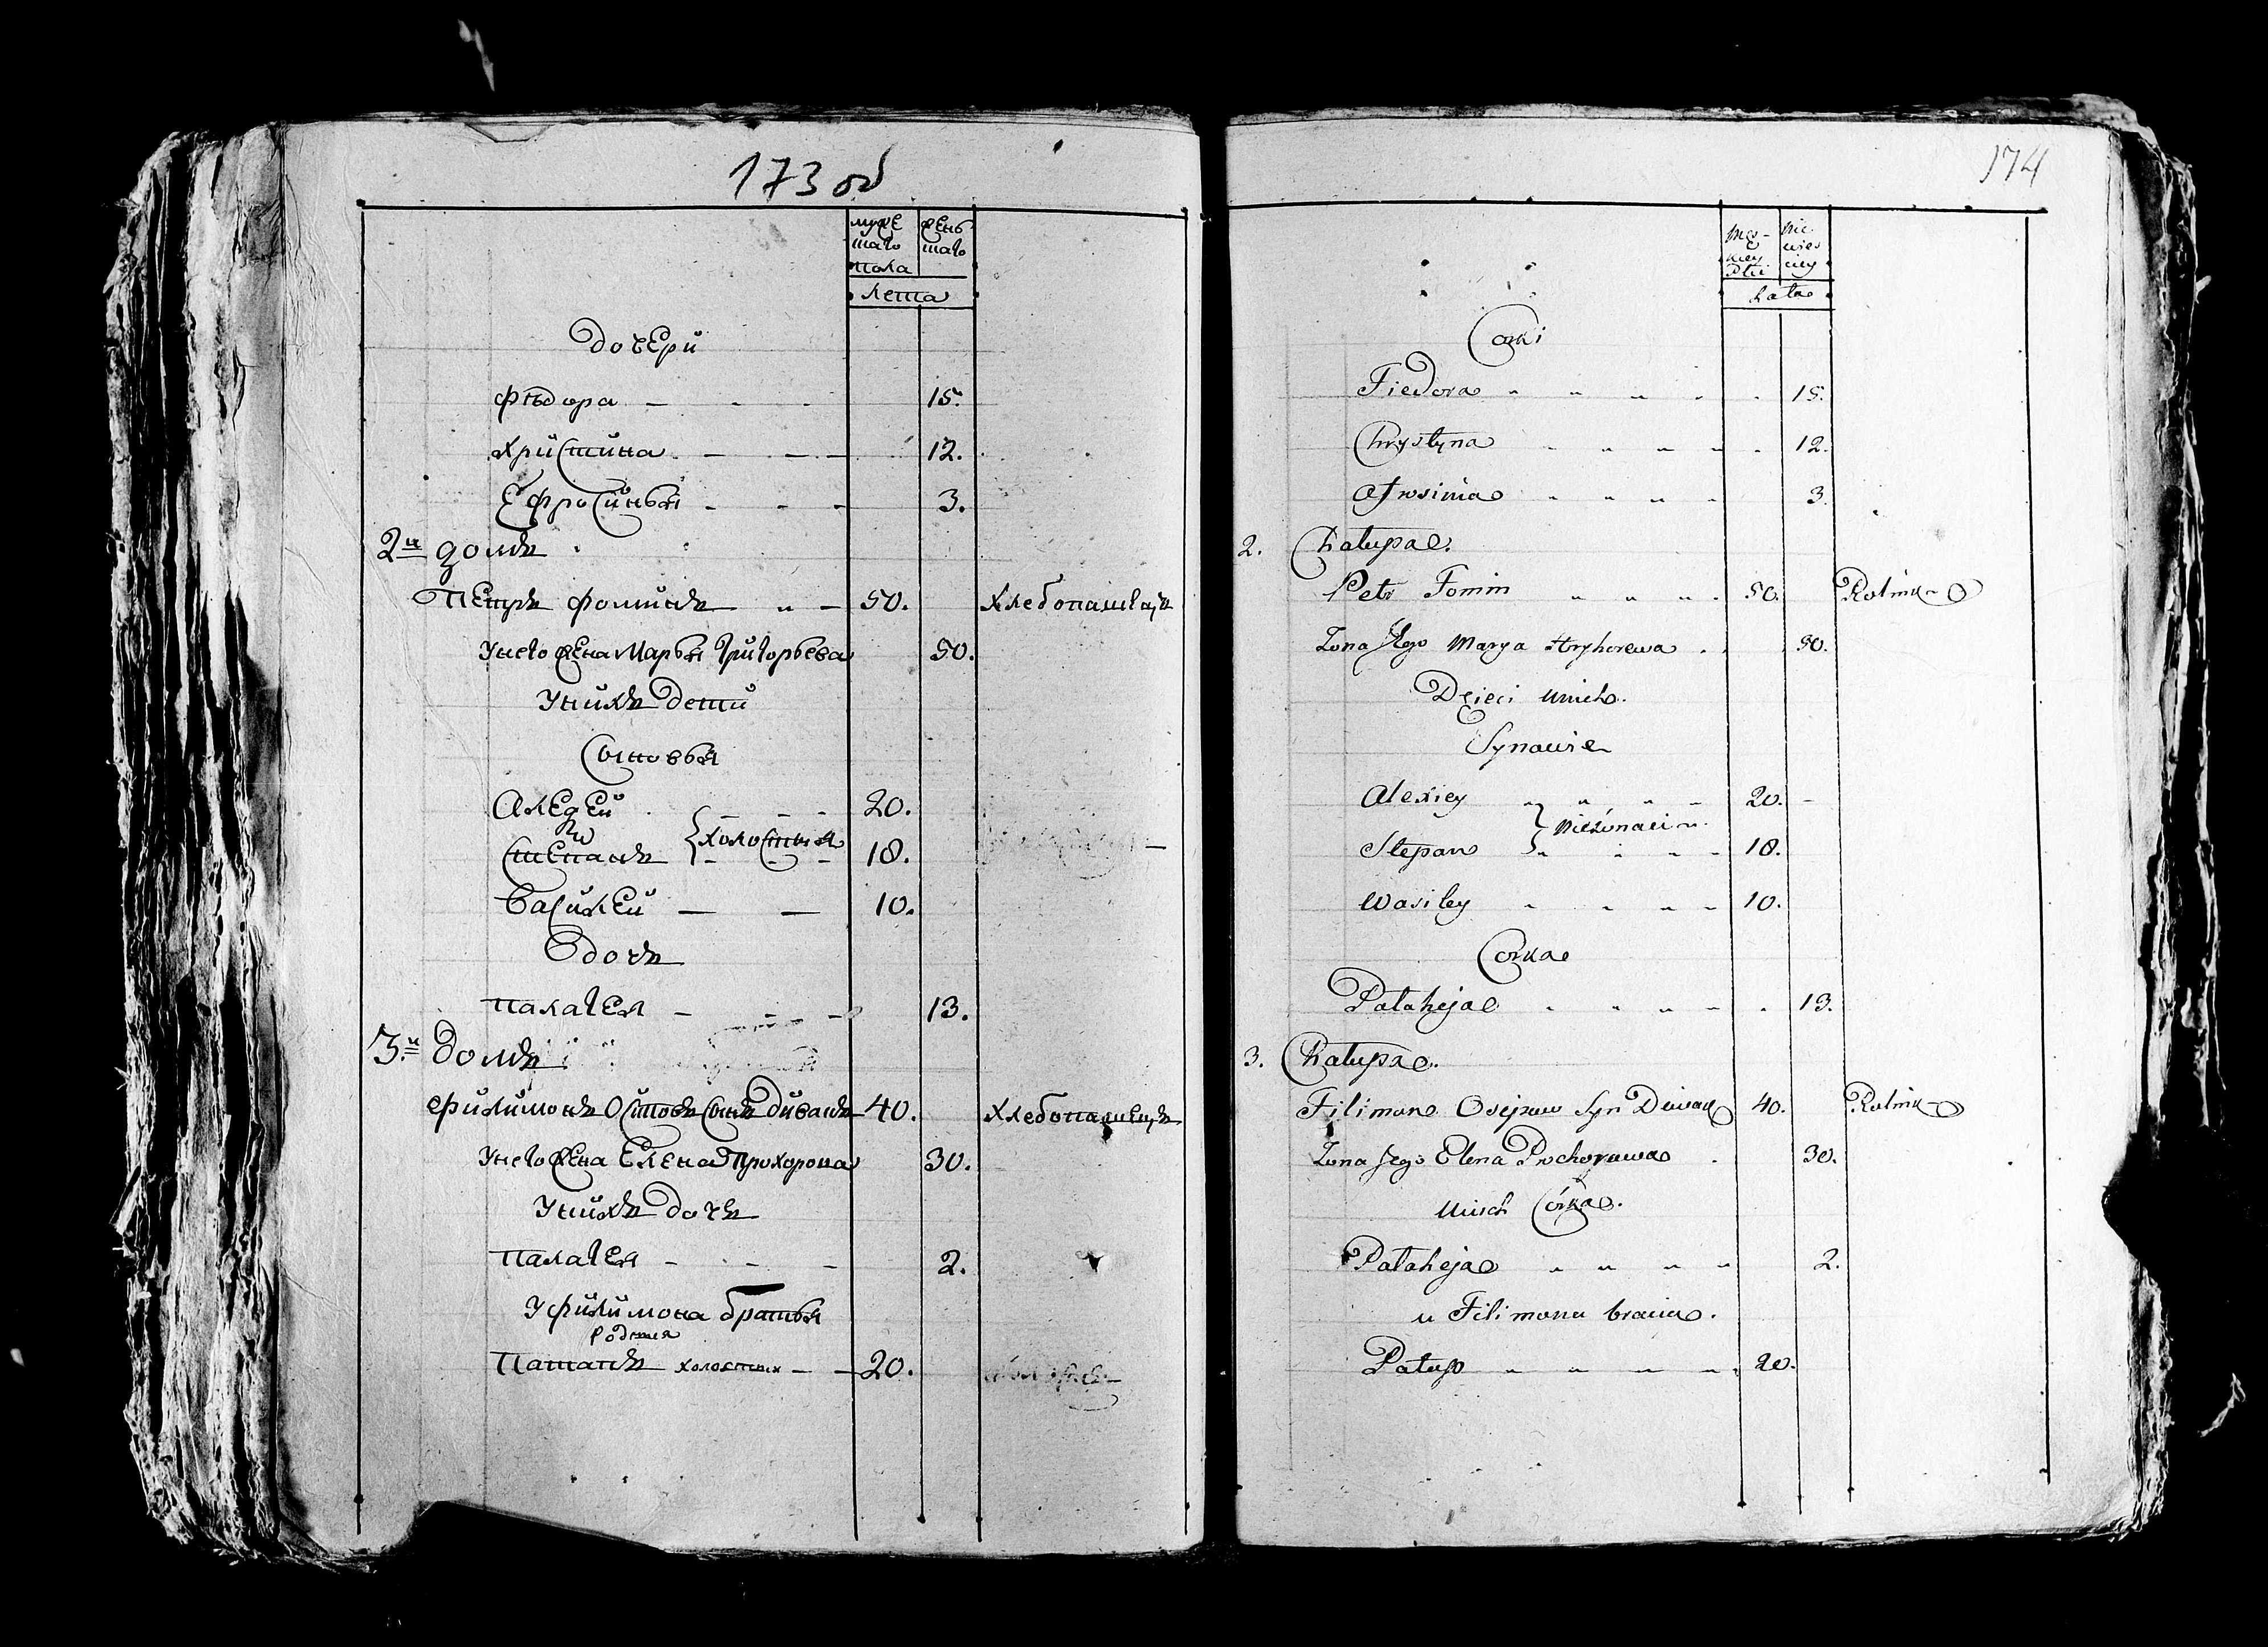 173 об
муже
шаго
пола
жень
шаго
лета
дочери
Фѣдора 15.
Христина 12.
Ефросинья 3.
2й домъ
Петръ Фоминъ 50. хлебопашецъ
У него жена Марья Григорьева 50.
У нихъ дети
Сыновья
Алецей 20.
холостыя
Степанъ 18.
Василей 10.
дочь
Палагея 13.
3й домъ
Филимонъ Остовъ сынъ Диванъ 40. хлебопашецъ
У него жена Елена Прохорова 30.
У нихъ дочь
Палагея 2.
У Филимона братья
родныя
Пашапъ холостых 20.
174
Męs-
kiey
Płci
Nie
wies
ciey
Lata
Corki
Fiedora 15.
Chrystyna 12.
Afrosinia 3
2. Chałupa.
Petr Fomin 50. Rolnik
Żona Jego Marya Hryhorewa 50.
Dzieci u nich.
Synawie
Alexiey 20.
nieżonaci
Stepan 18.
Wasiley 10.
Corka
Pałaheja 13.
3. Chałupa.
Filimon Osipaw Syn Diwan 40. Rolnik
Żona Jego Elena Prochorawa 30.
u nich Córka.
Pałaheja 2.
u Filimona bracia.
Patap 20.